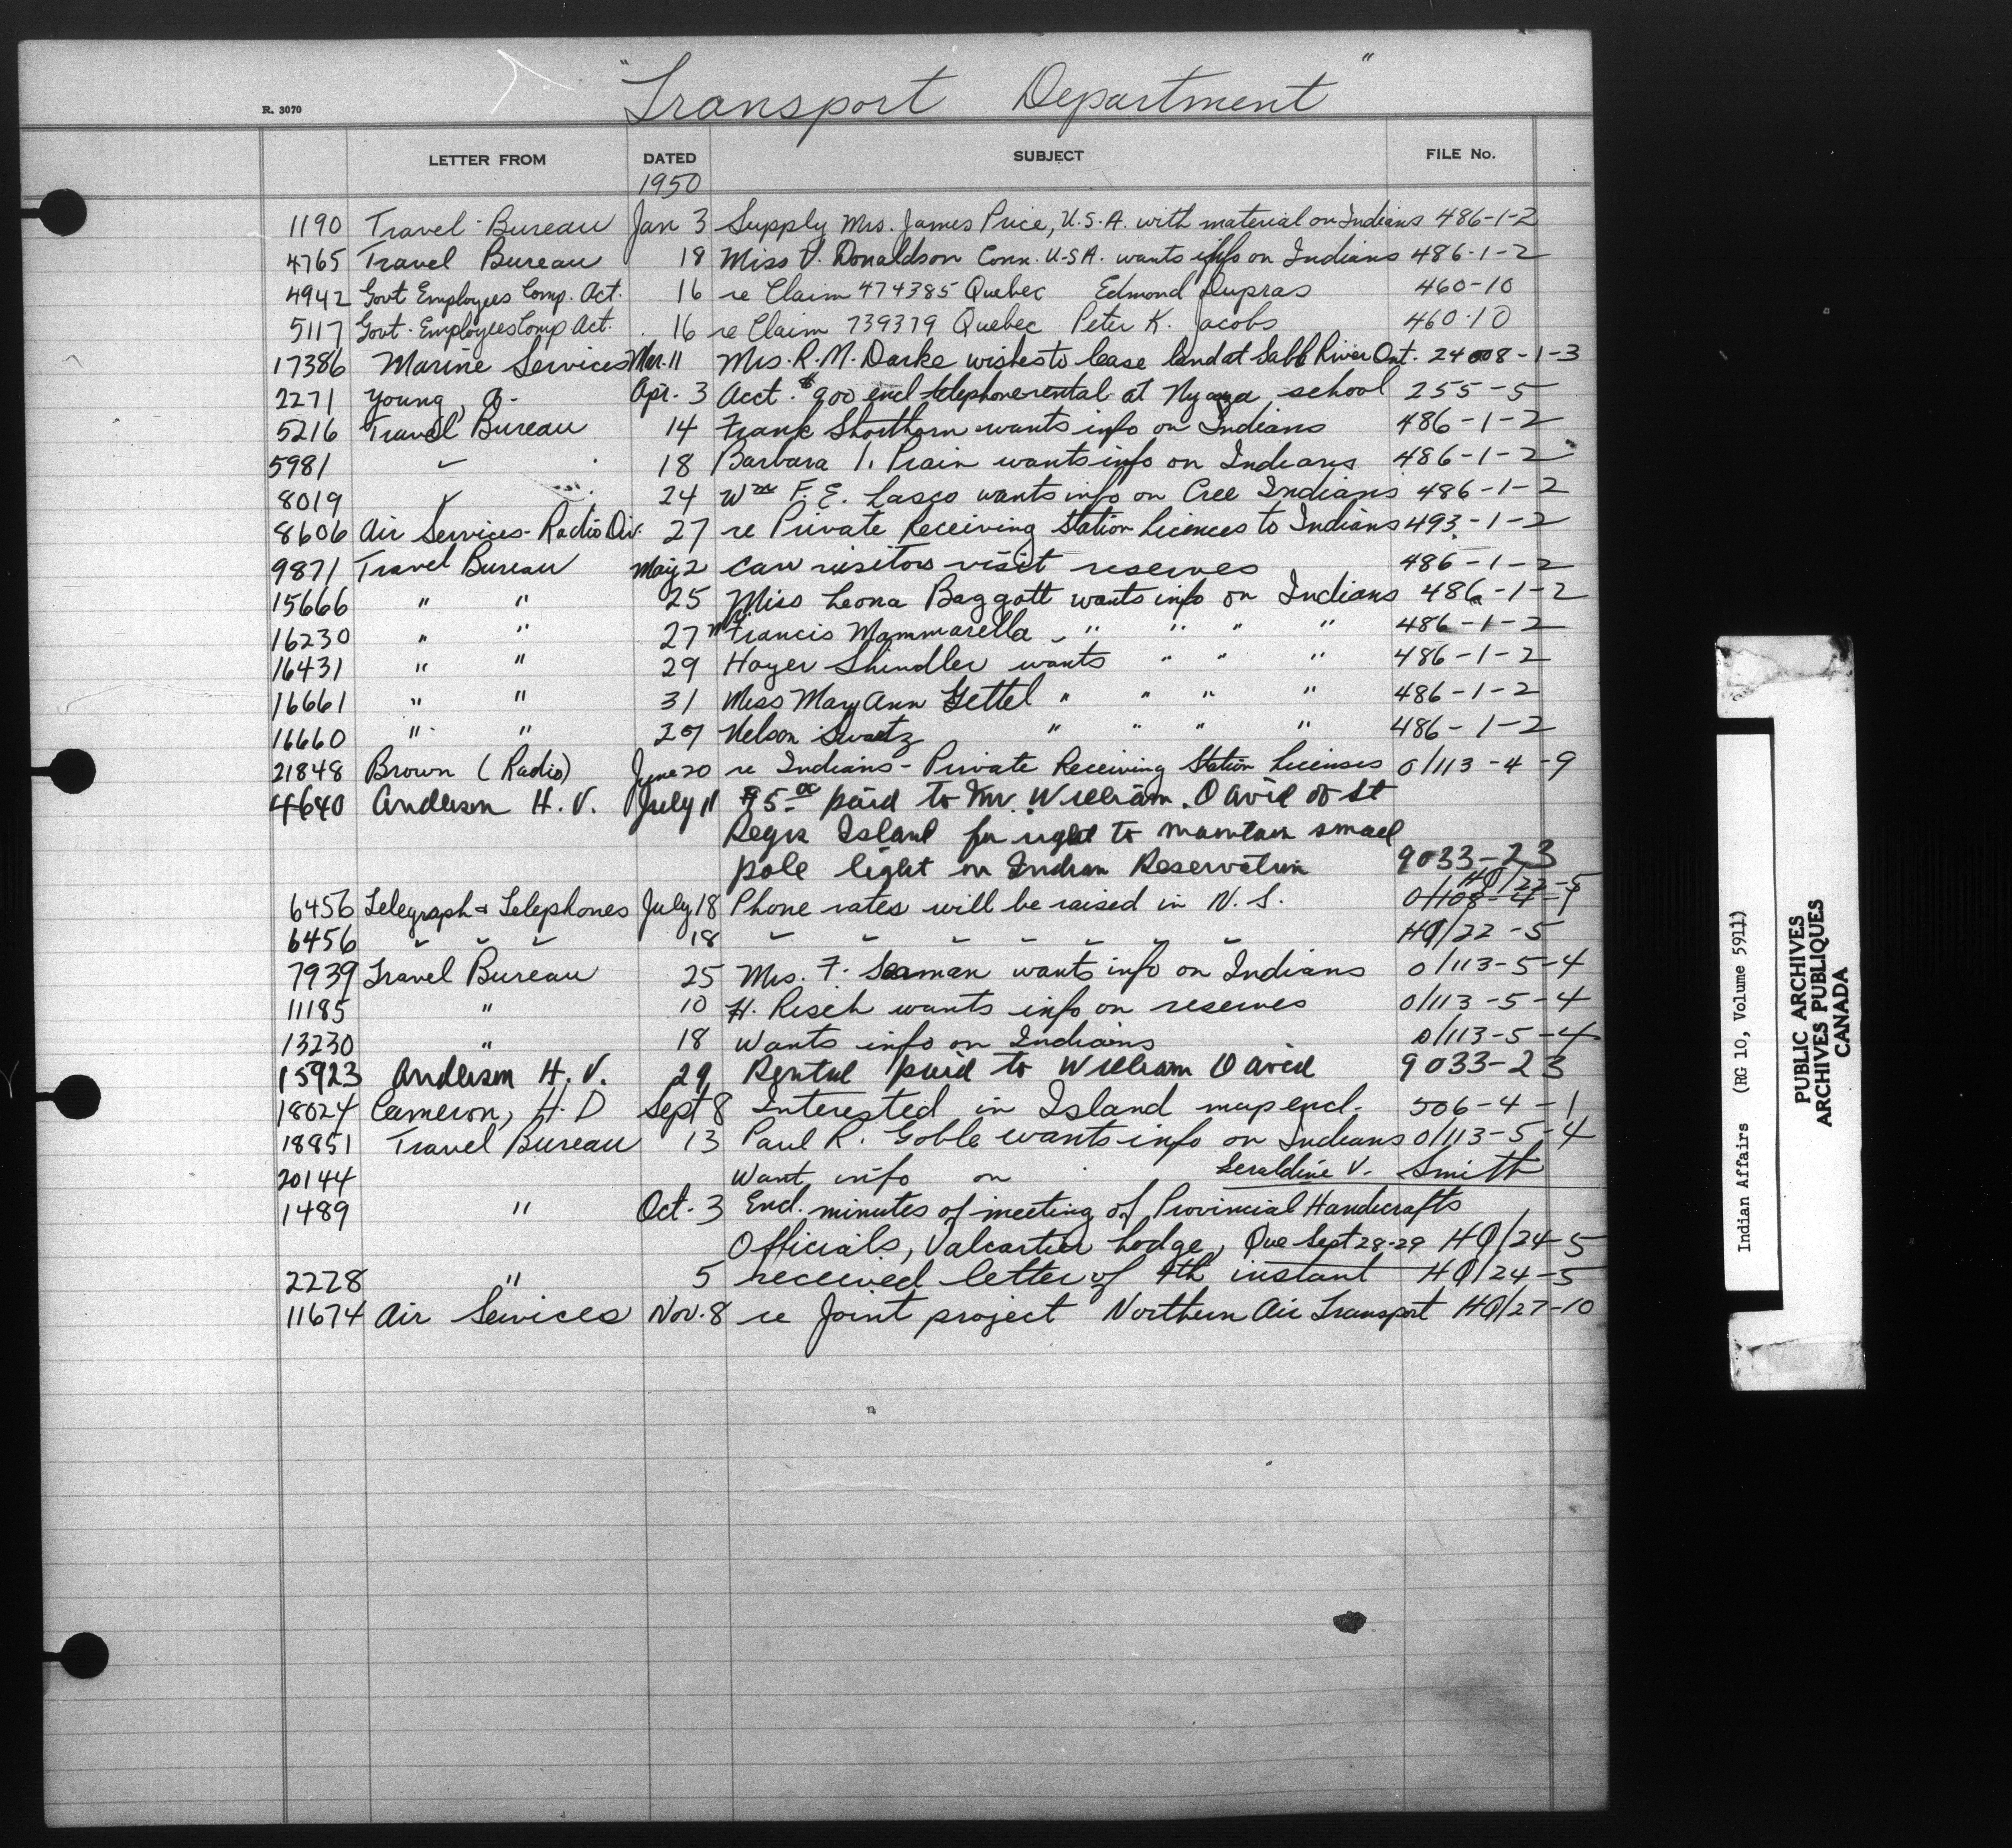 "Transport Department"
R. 3070
LETTER FROM DATED SUBJECT FILE No.
1950
1190 Travel Bureau Jan 3 Supply Mrs. James Price, U.S.A. with material on Indians 486-1-2
4765 Travel Bureau 18 Miss V. Donaldson Conn. U.S.A. wants info on Indians 486-1-2
4942 Govt Employees Comp. Act. 16 re Claim 474385 Quebec Edmond Dupras 460-10
5117 Govt. Employees Comp Act. 16 re Claim 739379 Quebec Peter K. Jacobs 460-10
17386 Marine Services Mar. 11 Mrs. R. M. Darke wishes to lease land at River Ont. 1-3
2271 Young, A. Apr. 3 Acct. $900 encl telephone rental at school 255-5
5216 Travel Bureau 14 Frank Shorthorn wants info on Indians 486-1-2
5981 " 18 Barbara Prain wants info on Indians 486-1-2
8019 " 24 Wm F. E. Lasco wants info on Cree Indians 486-1-2
8606 Air Services-Radio Div. 27 re Private Receiving Station Licences to Indians 493-1-2
9871 Travel Bureau May 2 can visitors visit reserves 486-1-2
15666 " " 25 Miss Leona Baggott wants info on Indians 486-1-2
16230 " " 27 Francis Mammarella " " " " 486-1-2
16431 " " 29 Hoyer Shindler wants " " " 486-1-2
16661 " " 31 Miss Mary Ann Gettel " " " " 486-1-2
16660 " " 29 Nelson Swartz " " " " 486-1-2
21848 Brown (Radio) June 20 re Indians - Private Receiving Station Licenses 0/113-4-9
4640 Anderson H. V. July 11 $5.00 paid to Mr. William David of St
Regis Island for right to maintain small
pole light on Indian Reservation 9033-23
HQ/22-5
6456 Telegraph & Telephones July 18 Phone rates will be raised in N. S. 0/108-4-1
6456 " " " 18 " " " " " " " HQ/22-5
7939 Travel Bureau 25 Mrs. F. Seaman wants info on Indians 0/113-5-4
11185 " 10 H. Risch wants info on reserves 0/113-5-4
13230 " 18 Wants info on Indians 0/113-5-4
15923 Anderson H. V. 29 Rental paid to William David 9033-23
18024 Cameron, H. D Sept 8 Interested in Island map encl. 506-4-1
18851 Travel Bureau 13 Paul R. Goble wants info on Indians 0/113-5-4
20144 Want info on Geraldine V. Smith
1489 " Oct. 3 Encl. minutes of meeting of Provincial Handicrafts
Officials, Valcartier Lodge, Que Sept 28-29 HQ/24-5
2228 " 5 received letter of 4th instant HQ/24-5
11674 Air Services Nov. 8 re Joint project Northern Air Transport HQ/27-10
Indian Affairs (RG 10, Volume 5911)
PUBLIC ARCHIVES
ARCHIVES PUBLIQUES
CANADA